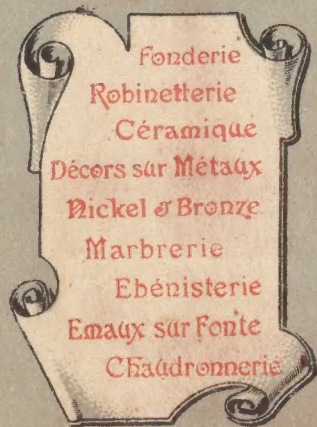 Fonderie
Robinetterie
Céramique
Décors sur Métaux
Nickel & Bronze
Marbrerie
Ebénisterie
Emaux sur Fonte
Chaudronnerie